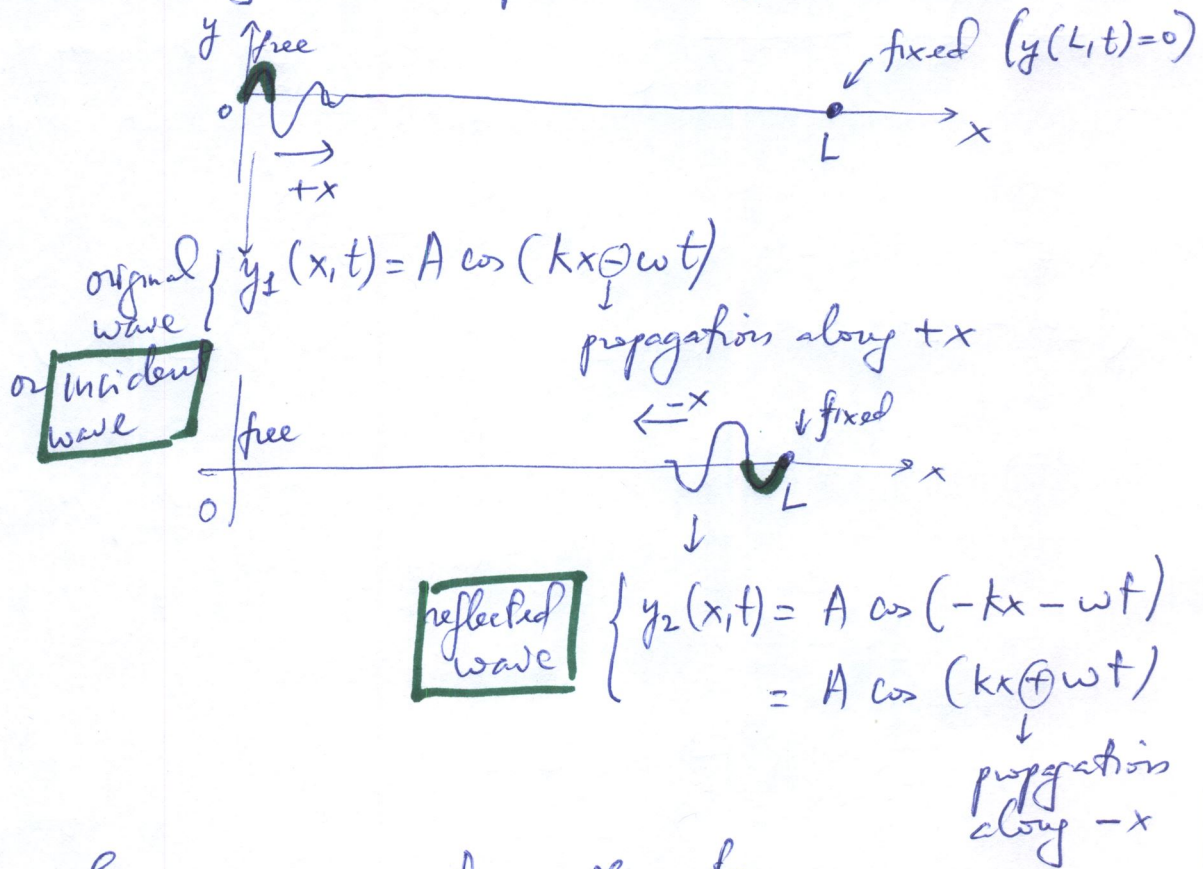 y free
fixed (y(L,t)=0)
0
L
x
+x
original wave { y₁(x,t) = A cos (kx ⊖ ωt)
propagation along +x
or incident wave
free
←-x
↓ fixed
x
0
L
reflected wave { y₂(x,t) = A cos (-kx - ωt)
= A cos (kx ⊕ ωt)
propagation
along -x